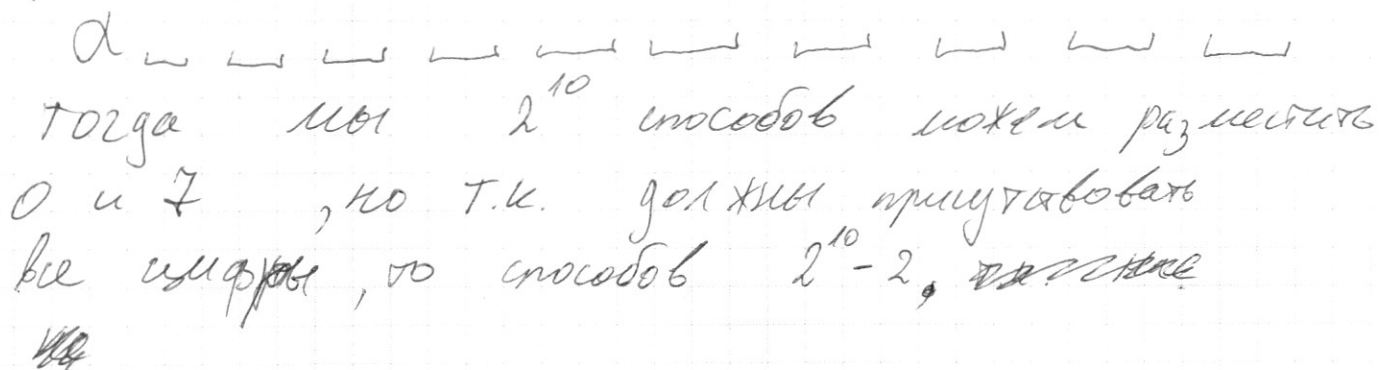 α _ _ _ _ _ _ _ _ _ _
тогда мы 2^10 способов можем разместить
0 и 7 , но т.к. должны присутствовать
все цифры, то способов 2^10 - 2.